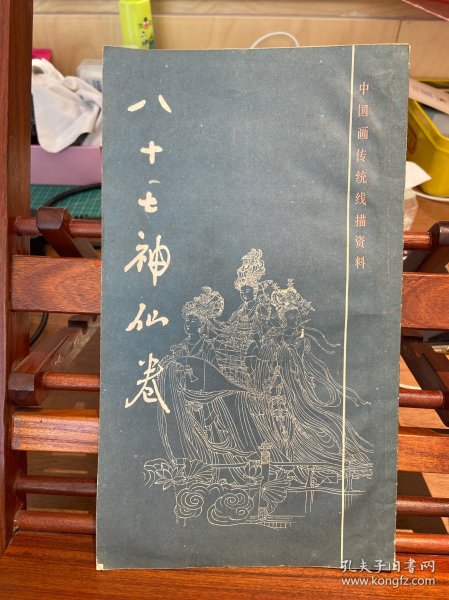 八十七神仙卷
中国画传统线描资料
孔夫子旧书网
www.kongfz.com